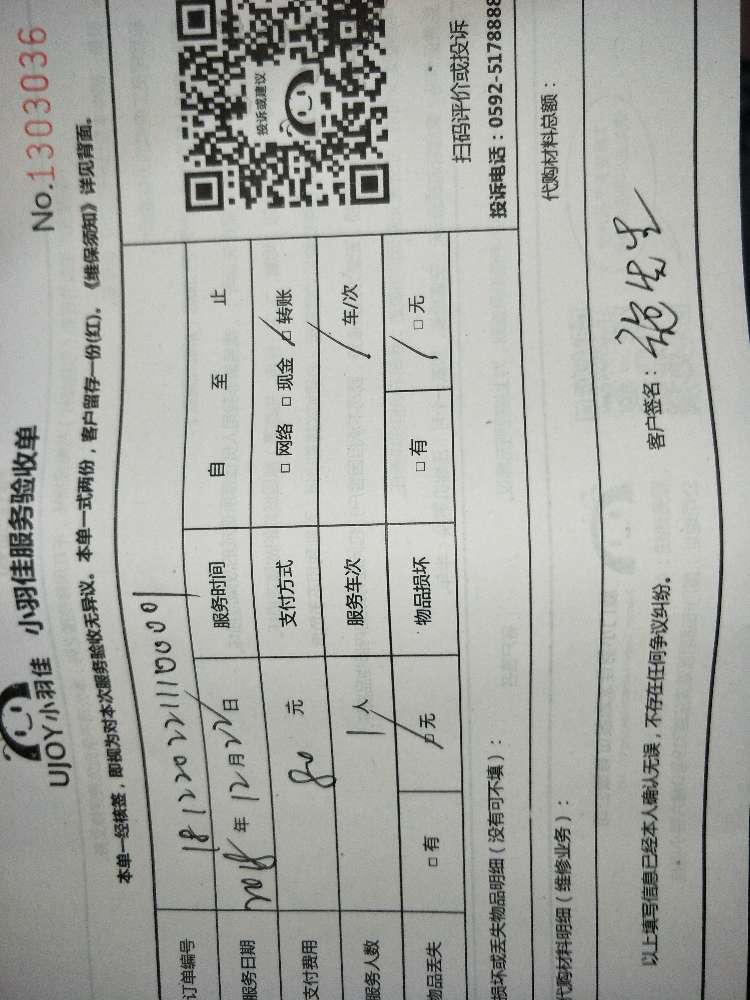 UJOY小羽佳 小羽佳服务验收单
No.1303036
本单一经核签，即视为对本次服务验收无异议。本单一式两份，客户留存一份(红)。《维保须知》详见背面。
订单编号
服务日期 2018 年 12 月 22 日 服务时间 自 至 止
支付费用 80 元 支付方式 □ 网络 □ 现金 □ 转账
服务人数 1 人 服务车次 车/次
物品丢失 □ 有 □ 无 物品损坏 □ 有 □ 无
投诉或建议
扫码评价或投诉
投诉电话：0592-5178888
损坏或丢失物品明细（没有可不填）：
代购材料明细（维修业务）： 代购材料总额：
以上填写信息已经本人确认无误，不存在任何争议纠纷。 客户签名：施先生